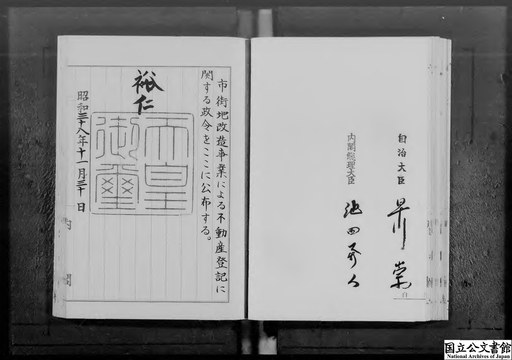 自治大臣 早川崇
内閣総理大臣 池田勇人
市街地改造事業による不動産登記に
関する政令をここに公布する。
裕仁
天皇御璽
昭和三十八年十一月三十日
内閣
国立公文書館
National Archives of Japan